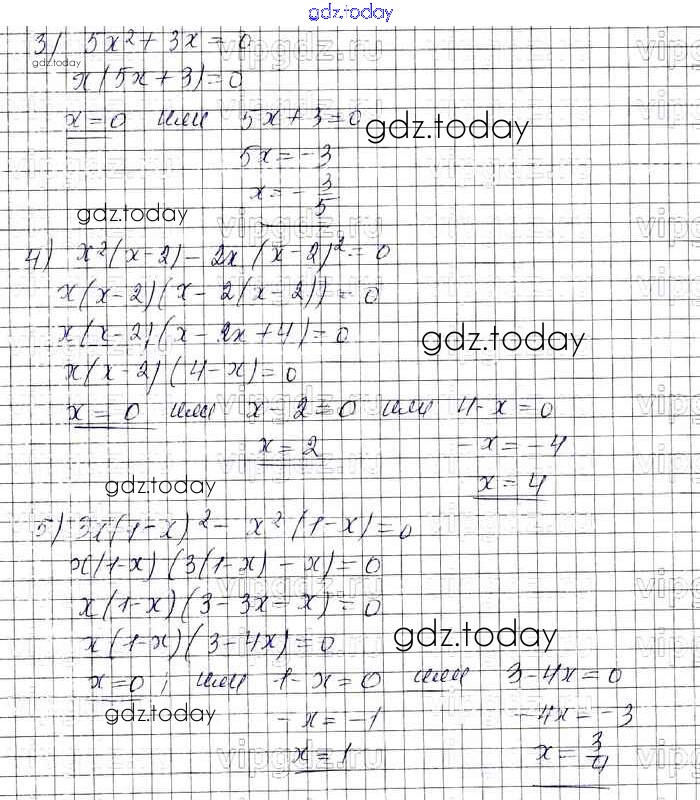 gdz.today
3) 5x² + 3x = 0
gdz.today
x(5x + 3) = 0
x = 0 или 5x + 3 = 0
gdz.today
5x = -3
x = - 3/5
gdz.today
4) x²(x-2) - 2x(x-2)² = 0
x(x-2)(x-2(x-2)) = 0
x(x-2)(x-2x+4) = 0
gdz.today
x(x-2)(4-x) = 0
x = 0 или x-2 = 0 или 4-x = 0
x = 2 -x = -4
gdz.today x = 4
5) 3x(1-x)² - x²(1-x) = 0
x(1-x)(3(1-x) - x) = 0
x(1-x)(3-3x-x) = 0
x(1-x)(3-4x) = 0
gdz.today
x = 0; или 1-x = 0 или 3-4x = 0
gdz.today -x = -1 -4x = -3
x = 1 x = 3/4
vipgdz.ru